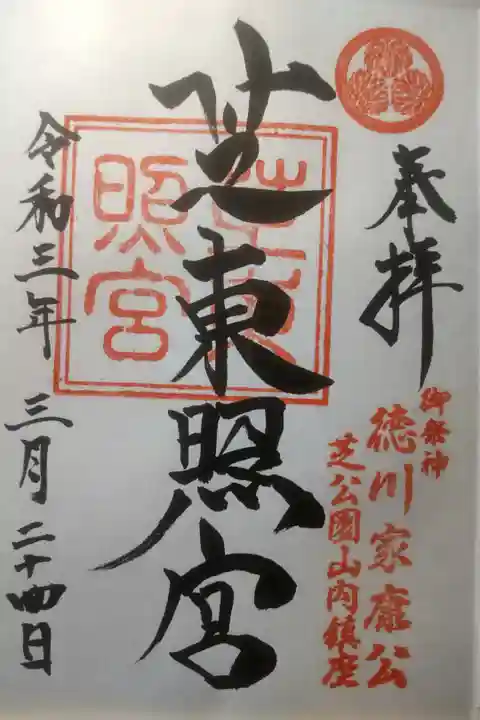 奉拝
御祭神
徳川家康公
芝公園山内鎮座
芝東照宮
芝東
照宮
令和三年 三月二十四日